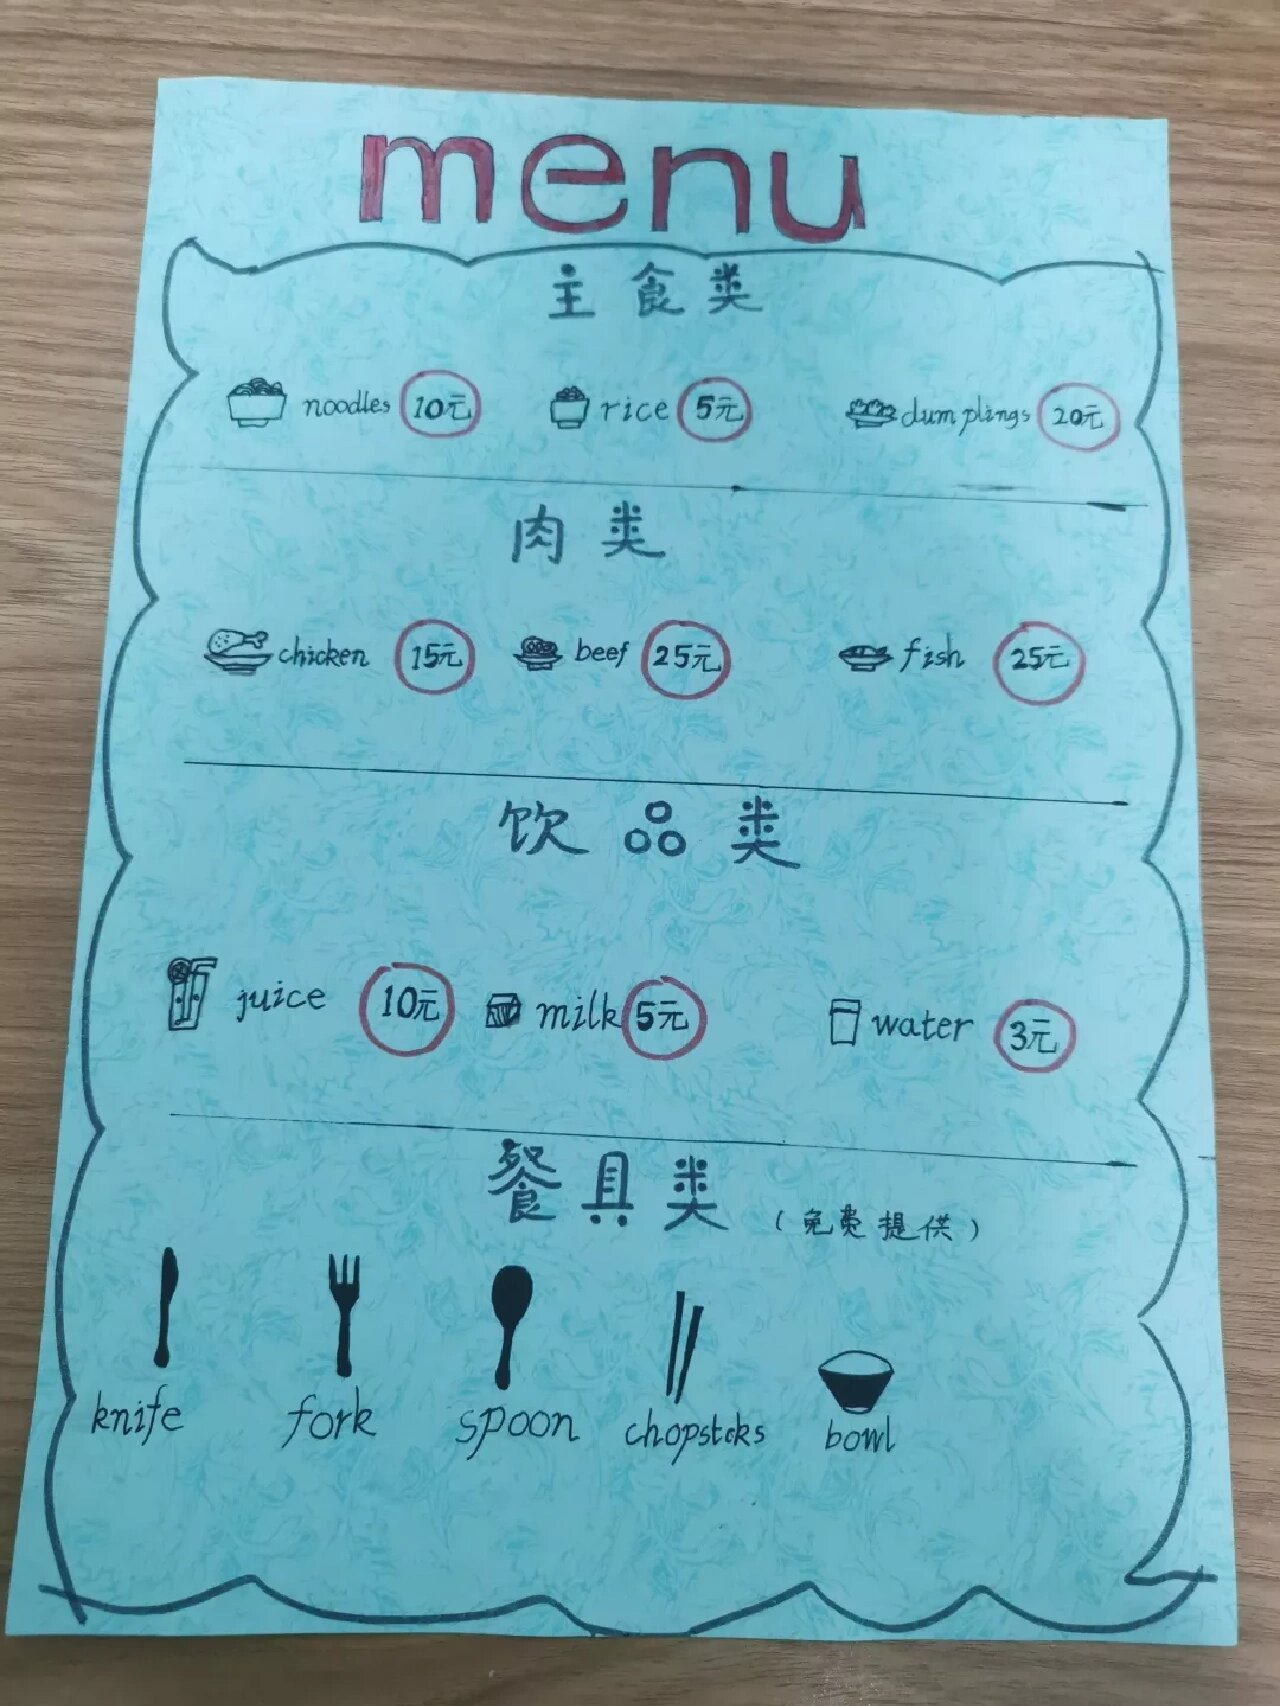 menu
主食类
noodles 10元 rice 5元 dumplings 20元
肉类
chicken 15元 beef 25元 fish 25元
饮品类
juice 10元 milk 5元 water 3元
餐具类 (免费提供)
knife fork spoon chopstcks bowl